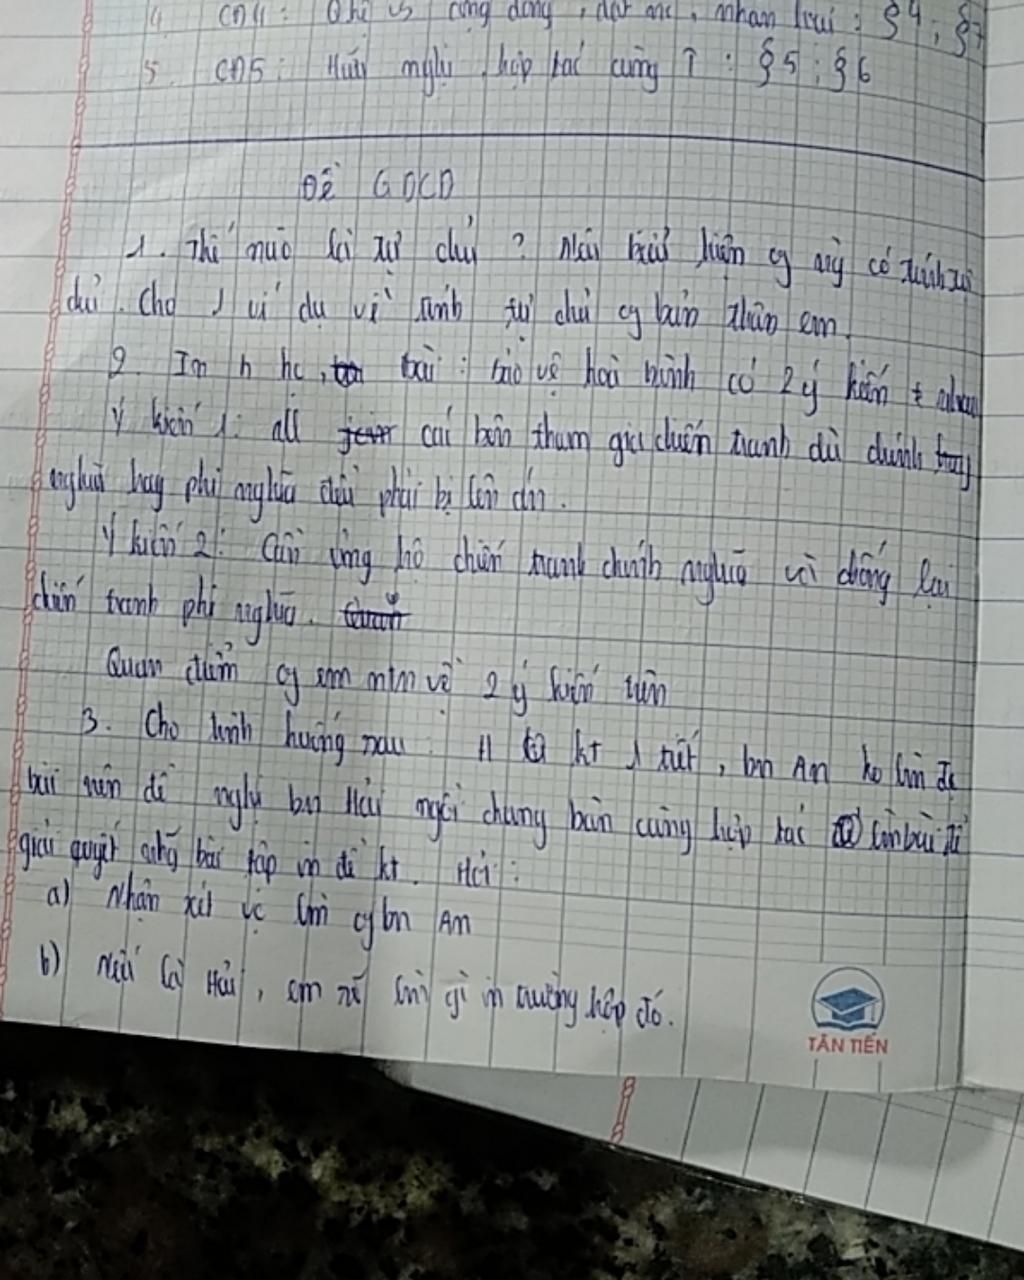 4. CĐ4: Qhệ vs cộng đồng, đất nc, nhân loại: §4; §7
5. CĐ5: Hữu nghị, hợp tác cùng : §5; §6
Đề GDCD
1. Thế nào là tự chủ? Nêu biểu hiện cg có tính tự
chủ. Cho 1 ví dụ về tính tự chủ cg bản thân em.
2. Im h hc, bài: bảo vệ hoà bình có 2 ý kiến
Ý kiến 1: all các bên tham gia chiến tranh dù chính
nghĩa hay phi nghĩa đều phải bị lên án.
Ý kiến 2: Cần ủng hộ chiến tranh chính nghĩa và chống lại
chiến tranh phi nghĩa.
Quan điểm cg em ntn về 2 ý kiến trên
3. Cho tình huống sau: kt 1 tiết, bn An ko làm đc
bài nên đề nghị bn Hải ngồi chung bàn cùng hợp tác làm bài để
giải quyết bài tập in đề kt. Hỏi:
a) Nhận xét vc làm cg bn An
b) Nếu là Hải, em sẽ làm gì in trường hợp đó.
TÂN TIẾN